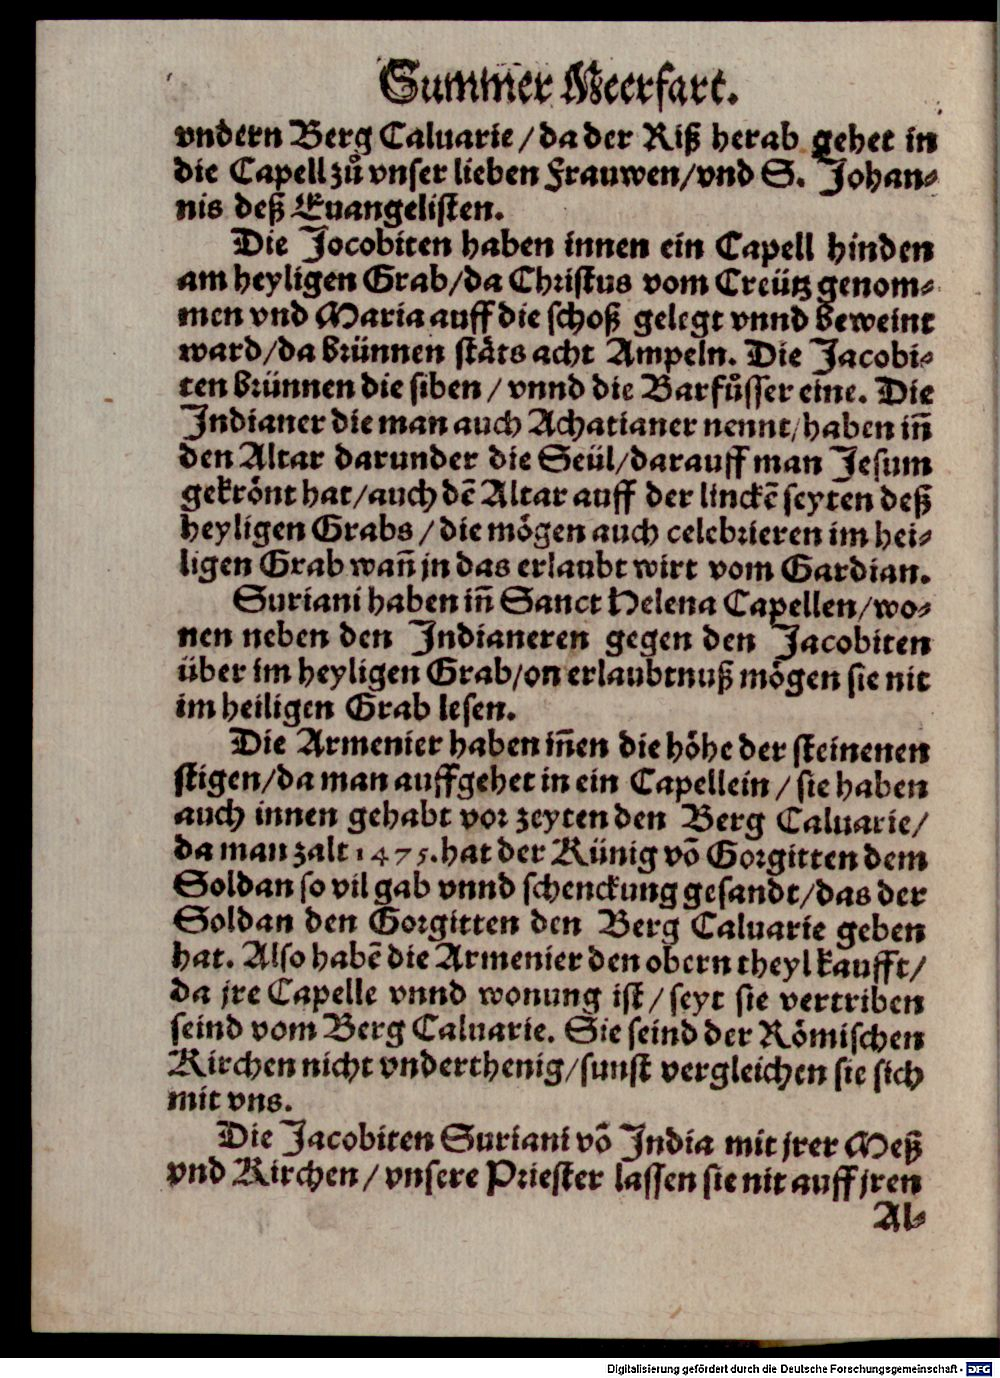 Summer Meerfart.
vndern Berg Caluarie / da der Riß herab gehet in
die Capell zů vnser lieben Frauwen/vnd S. Johan⸗
nis deß Euangelisten.
Die Jocobiten haben innen ein Capell hinden
am heyligen Grab/da Christus vom Creütz genom⸗
men vnd Maria auff die schoß gelegt vnnd beweint
ward/da brünnen stäts acht Ampeln. Die Jacobi⸗
ten brünnen die siben / vnnd die Barfůsser eine. Die
Indianer die man auch Achatianer nennt/haben iñ
den Altar darunder die Seül/darauff man Jesum
gekrönt hat/auch dē Altar auff der linckē seyten deß
heyligen Grabs / die mögen auch celebrieren im hei⸗
ligen Grab wañ jn das erlaubt wirt vom Gardian.
Suriani haben iñ Sanct Helena Capellen/wo⸗
nen neben den Indianeren gegen den Jacobiten
über im heyligen Grab/on erlaubtnuß mögen sie nit
im heiligen Grab lesen.
Die Armenier haben iñen die höhe der steinenen
stigen/da man auffgehet in ein Capellein / sie haben
auch innen gehabt vor zeyten den Berg Caluarie/
da man zalt 1475. hat der Künig võ Gorgitten dem
Soldan so vil gab vnnd schenckung gesandt/das der
Soldan den Gorgitten den Berg Caluarie geben
hat. Also habē die Armenier den obern theyl kaufft/
da jre Capelle vnnd wonung ist / seyt sie vertriben
seind vom Berg Caluarie. Sie seind der Römischen
Kirchen nicht vnderthenig/sunst vergleichen sie sich
mit vns.
Die Jacobiten Suriani võ India mit jrer Meß
vnd Kirchen / vnsere Priester lassen sie nit auff jren
Al⸗
Digitalisierung gefördert durch die Deutsche Forschungsgemeinschaft - DFG